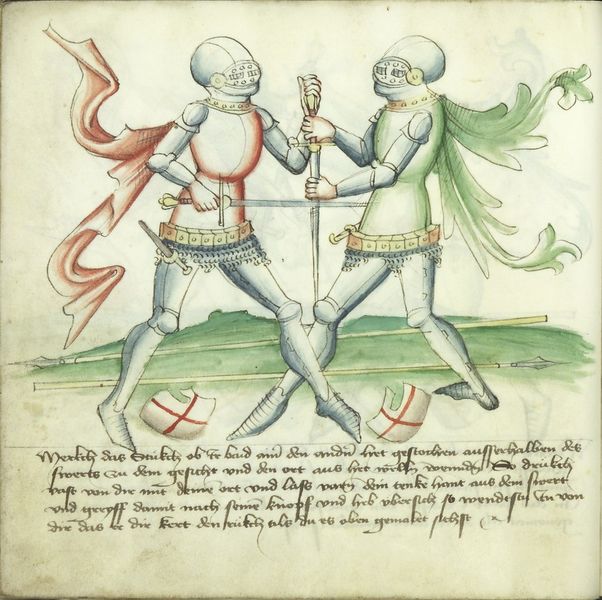 Merckh das Stuckh ob Er baid ainē den andern het gestochen ausserhalben des
swerts zu dem gesicht und den ort aus het wellen wennden So druckh
vast von dir mit deinē ort vnd lass varen dein tencke hant aus dem swert
vnd greyff damit nach seinē knopf vnd heb ubersich so wendestu in von
dir das er dir kert den ruckh als du es oben gemalet sichst